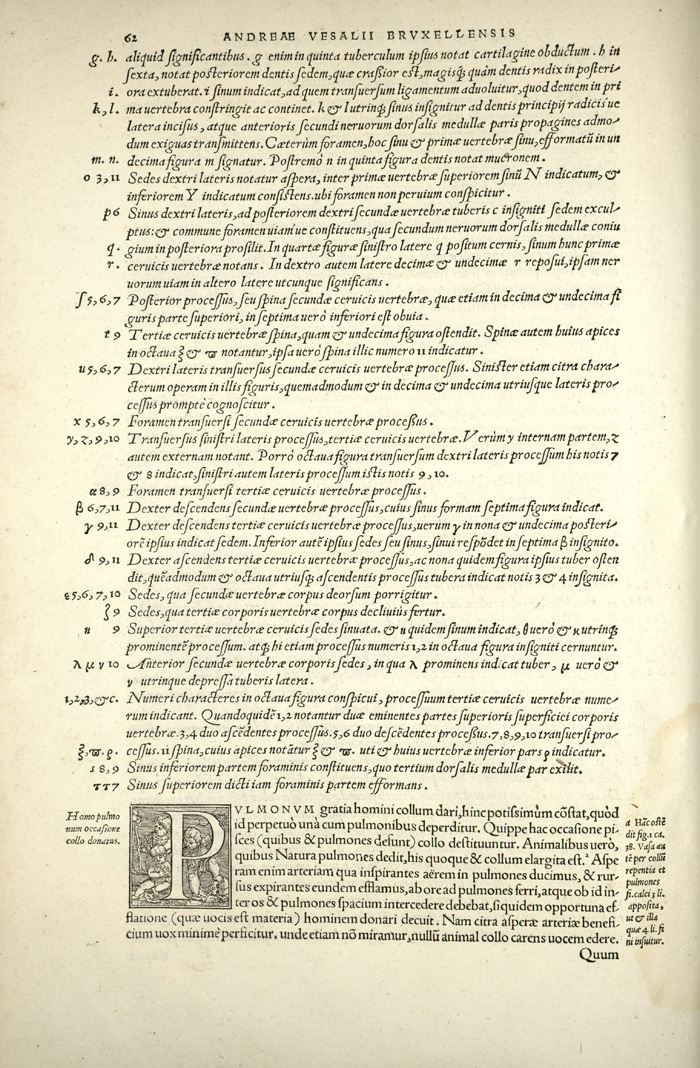 62 ANDREAE VESALII BRVXELLENSIS
g. h. aliquid significantibus. g enim in quinta tuberculum ipsius notat cartilagine obductum. h in
sexta, notat posteriorem dentis sedem, quæ craßior est, magisq́; quàm dentis radix in posteri⸗
i. ora extuberat. i sinum indicat, ad quem transuersum ligamentum aduoluitur, quod dentem in pri
k, l. ma uertebra constringit ac continet. k & l utrinq; sinus insignitur ad dentis principij radicis ue
latera incisus, atque anterioris secundi neruorum dorsalis medullæ paris propagines admo⸗
dum exiguas transmittens. Cæterùm foramen, hoc sinu & primæ uertebræ sinu, efformatũ in un
m. n. decima figura m signatur. Postremò n in quinta figura dentis notat mucronem.
o 3, 11 Sedes dextri lateris notatur aspera, inter primæ uertebræ superiorem sinũ N indicatum, &
inferiorem Y indicatum consistens. ubi foramen non peruium conspicitur.
p 6 Sinus dextri lateris, ad posteriorem dextri secundæ uertebræ tuberis c insigniti sedem excul⸗
ptus: & commune foramen uiam'ue constituens, qua secundum neruorum dorsalis medullæ coniu
q. gium in posteriora prosilit. In quartæ figuræ sinistro latere q positum cernis, sinum hunc primæ
r. ceruicis uertebræ notans. In dextro autem latere decimæ & undecimæ r reposui, ipsam ner
uorum uiam in altero latere utcunque significans.
ſ 5, 6, 7 Posterior processus, seu spina secundæ ceruicis uertebræ, quæ etiam in decima & undecima fi
guris parte superiori, in septima uerò inferiori est obuia.
t 9 Tertiæ ceruicis uertebræ spina, quam & undecima figura ostendit. Spinæ autem huius apices
in octaua ξ & ϖ notantur, ipsa uerò spina illic numero 11 indicatur.
u 5, 6, 7 Dextri lateris transuersus secundæ ceruicis uertebræ processus. Sinister etiam citra chara⸗
cterum operam in illis figuris, quemadmodum & in decima & undecima utriusque lateris pro⸗
cessus promptè cognoscitur.
x 5, 6, 7 Foramen transuersi secundæ ceruicis uertebræ proceßus.
y, z, 9, 10 Transuersus sinistri lateris processus, tertiæ ceruicis uertebræ. Verùm y internam partem, z
autem externam notant. Porrò octaua figura transuersum dextri lateris processum his notis 7
& 8 indicat, sinistri autem lateris processum istis notis 9, 10.
α 8, 9 Foramen transuersi tertiæ ceruicis uertebræ processus.
β 6, 7, 11 Dexter descendens secundæ uertebræ processus, cuius sinus formam septima figura indicat.
γ 9, 11 Dexter descendens tertiæ ceruicis uertebræ processus, uerum γ in nona & undecima posteri⸗
orẽ ipsius indicat sedem. Inferior autẽ ipsius sedes seu sinus, sinui respõdet in septima β insignito.
δ 9, 11 Dexter ascendens tertiæ ceruicis uertebræ processus, ac nona quidem figura ipsius tuber osten
dit, quẽadmodum & octaua utriusq; ascendentis processus tubera indicat notis 3 & 4 insignita.
ε 5, 6, 7, 10 Sedes, qua secundæ uertebræ corpus deorsum porrigitur.
ζ 9 Sedes, qua tertiæ corporis uertebræ corpus decliuius fertur.
η 9 Superior tertiæ uertebræ ceruicis sedes sinuata. & η quidem sinum indicat, θ uerò & κ utrinq;
prominentẽ processum. atq; hi etiam processus numeris 1, 2 in octaua figura insigniti cernuntur.
λ μ ν 10 Anterior secundæ uertebræ corporis sedes, in qua λ prominens indicat tuber, μ uerò &
ν utrinque depressa tuberis latera.
1, 2, 3, &c. Numeri characteres in octaua figura conspicui, processuum tertiæ ceruicis uertebræ nume⸗
rum indicant. Quandoquidẽ 1, 2 notantur duæ eminentes partes superioris superficiei corporis
uertebræ. 3, 4 duo ascẽdentes processus. 5, 6 duo descẽdentes proceßus. 7, 8, 9, 10 transuersi pro⸗
ξ, ϖ. ρ. cessus. 11 spina, cuius apices notãtur ξ & ϖ. uti & huius uertebræ inferior pars ρ indicatur.
s 8, 9 Sinus inferiorem partem foraminis constituens, quo tertium dorsalis medullæ par exilit.
ττ 7 Sinus superiorem dicti iam foraminis partem efformans.
Homo pulmo
num occasione
collo donatus.
PVLMONVM gratia homini collum dari, hinc potissimùm cõstat, quòd
id perpetuò unà cum pulmonibus deperditur. Quippe hac occasione pi⸗
sces (quibus & pulmones desunt) collo destituuntur. Animalibus uerò,
quibus Natura pulmones dedit, his quoque & collum elargita est.ª Aspe
ram enim arteriam qua inspirantes aërem in pulmones ducimus, & rur⸗
sus expirantes eundem efflamus, ab ore ad pulmones ferri, atque ob id in⸗
ter os & pulmones spacium intercedere debebat, siquidem opportuna ef⸗
flatione (quæ uocis est materia) hominem donari decuit. Nam citra asperæ arteriæ benefi⸗
cium uox minimè perficitur. unde etiam nõ miramur, nullũ animal collo carens uocem edere.
Quum
a Hãc ostẽ
dit fig. 1 ca.
38. Vasa au
tẽ per collũ
repentia et
pulmones
fi. calci 3 li.
apposita,
ut & illa
quæ 4 li. fi
ni insuitur.